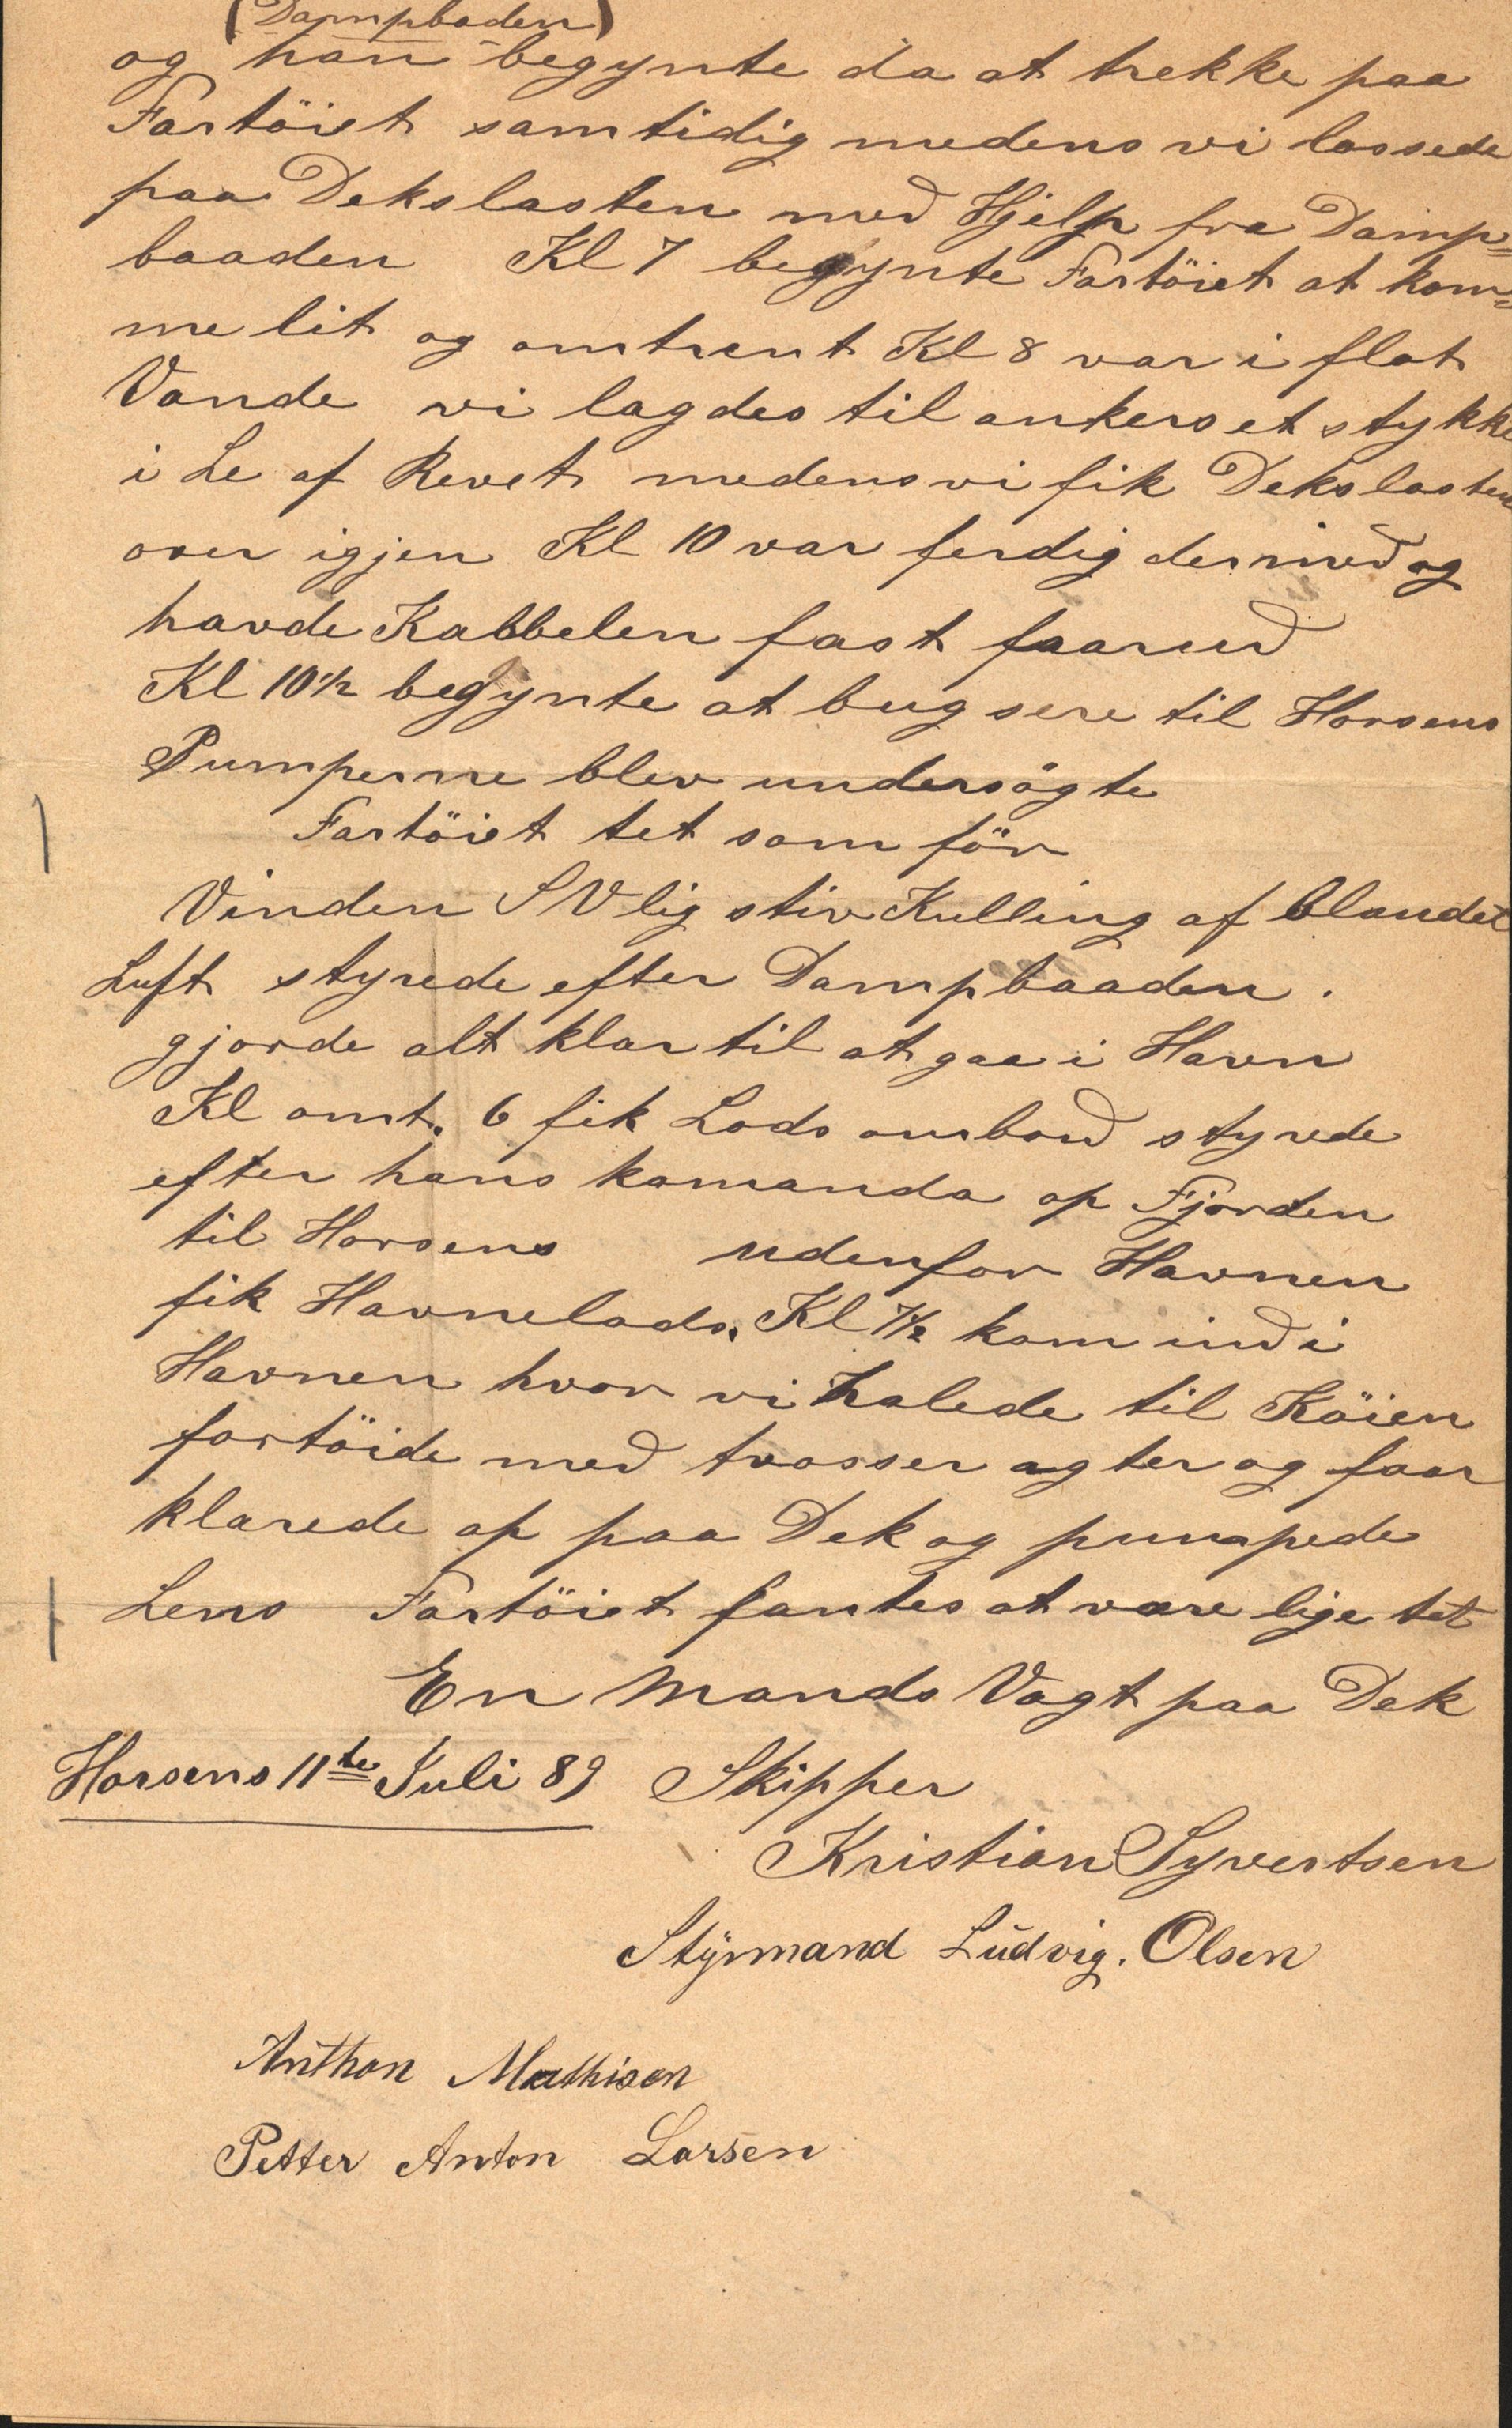 (Dampbaden)
og han begynte da at trekke paa
Fartöiet samtidig medens vi lossede
paa Dekslasten med Hjelp fra Damp=
baaden Kl 7 begynte Fartöiet at kom=
me lit og omtrent Kl 8 var i flot
Vande vi lagdes til ankers et stykke
i Le af Revet medens vi fik Dekslasten
over igjen Kl 10 var ferdig dermed og
havde Kabbelen fast faarud
Kl 10 1/2 begynte at bugsere til Horsens
Pumperne blev undersögte
Fartöiet tet som för
Vinden SVlig stiv Kulling af blandet
Luft styrede efter Dampbaaden.
gjorde alt klar til at gaa i Havn
Kl omt. 6 fik Lods ombord styrede
efter hans komando op Fjorden
til Horsens udenfor Havnen
fik Havnelods. Kl 7 1/2 kom ind i
Havnen hvor vi halede til Köien
fortöide med trosser agter og faar
klarede op paa Dek og pumpede
Lens Fartöiet fantes at være lige tet
En Mands Vagt paa Dek
Horsens 11te Juli 89 Skipper
Kristian Syvertsen
Styrmand Ludvig. Olsen
Anthon Mathisen
Petter Anton Larsen